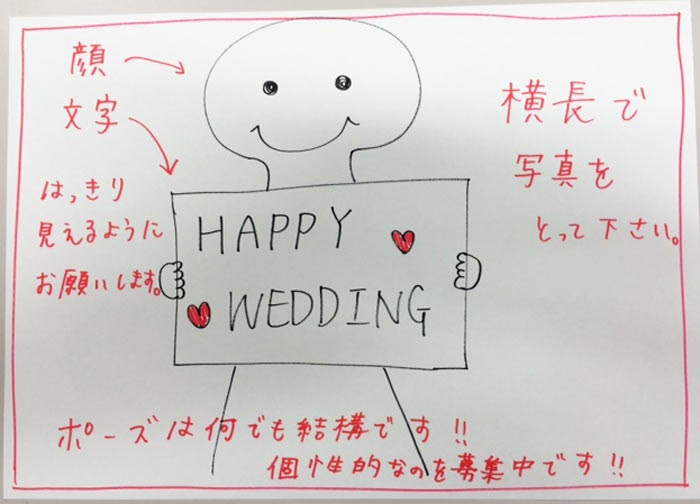 顔
文字
はっきり
見えるように
お願いします。
横長で
写真を
とって下さい。
HAPPY
WEDDING
ポーズは何でも結構です!!
個性的なのを募集中です!!